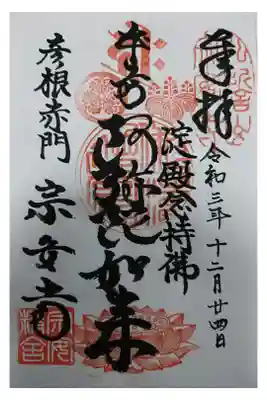 奉拝
令和三年十二月廿四日
淀殿念持佛
本尊阿弥陀如来
彦根赤門 宗安寺